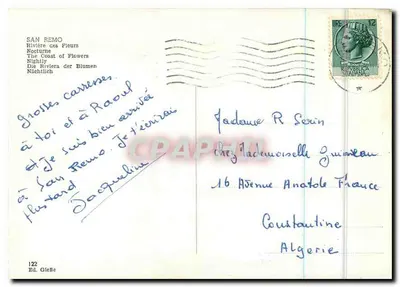 SAN REMO
Rivière des Fleurs
Nocturne
The Coast of Flowers
Nightly
Die Riviera der Blumen
Nächtlich
Grosses caresses
à toi et à Raoul
et Je suis bien arrivée
à San Remo. Je t'écrirai
Plustard
Jacqueline
122
Ed. Gieffe
Madame R Serin
chez Mademoiselle
16 Avenue Anatole France
Constantine
Algerie
CPARAMA